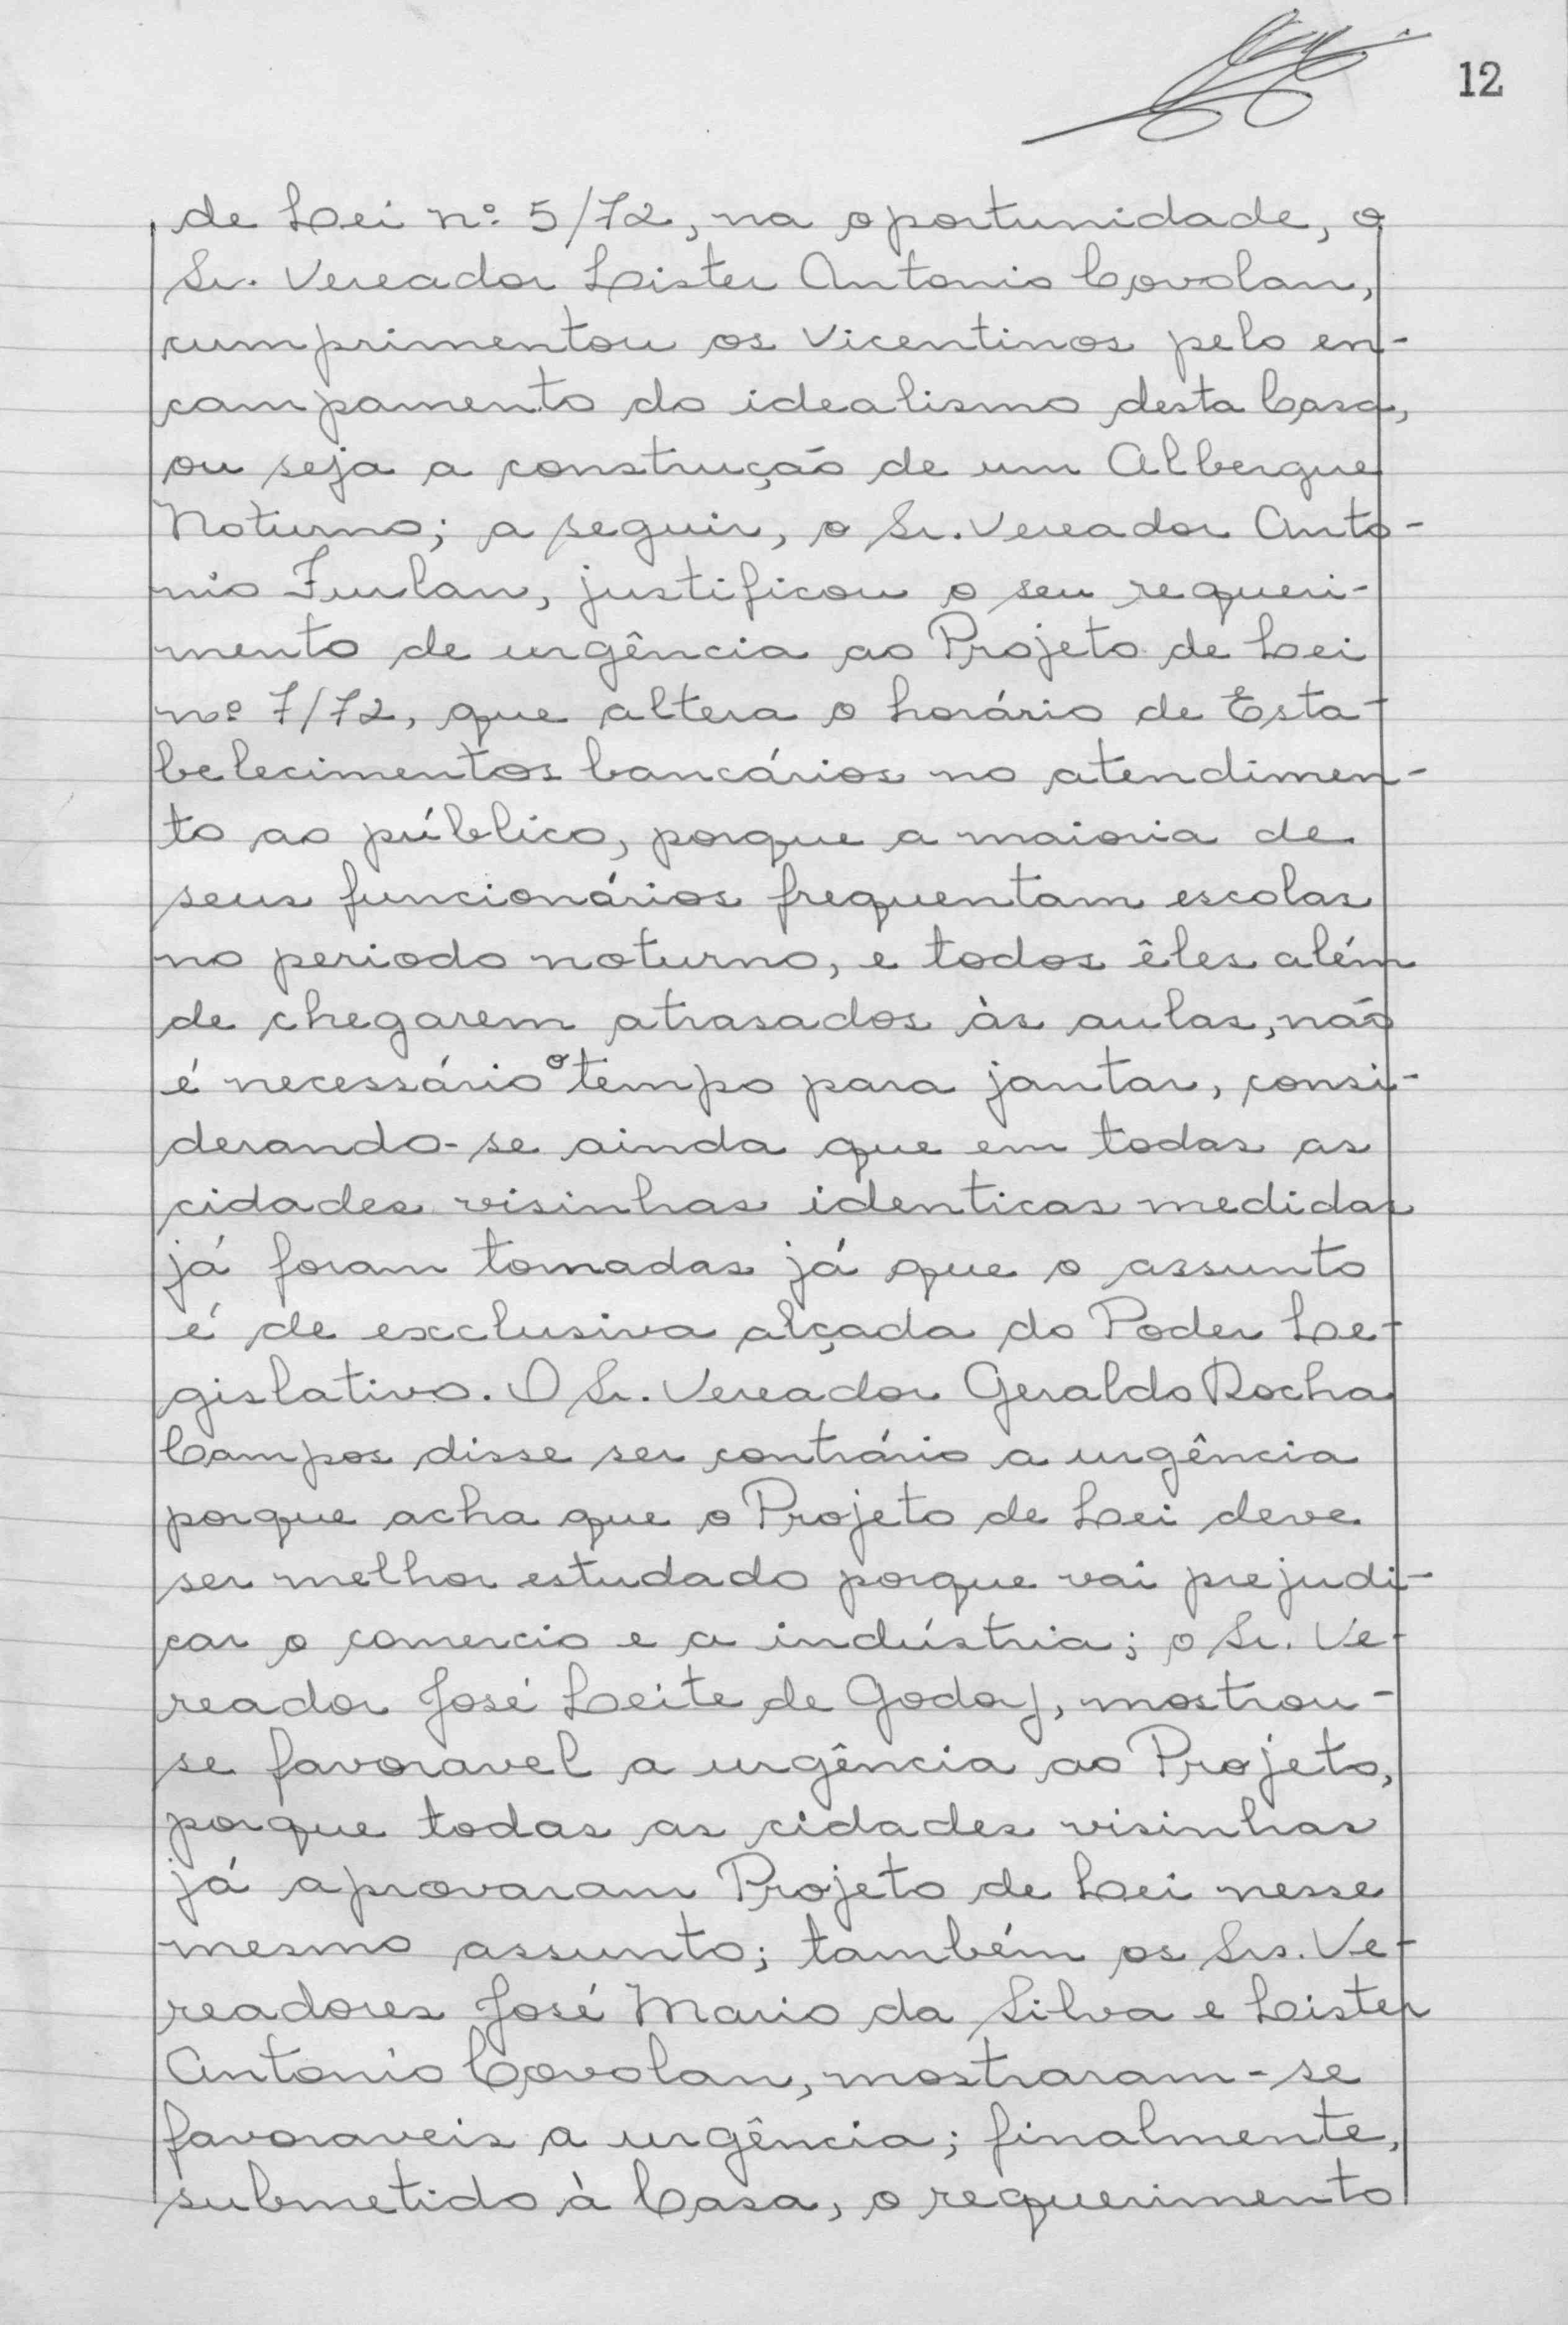 12
de Lei nº 5/72, na oportunidade, o
Sr. Vereador Lister Antonio Covolan,
cumprimentou os Vicentinos pelo en-
campamento do idealismo desta Casa,
ou seja a construção de um Albergue
Noturno; a seguir, o Sr. Vereador Anto-
nio Furlan, justificou o seu requeri-
mento de urgência ao Projeto de Lei
nº 7/72, que altera o horário de Esta-
belecimentos bancários no atendimen-
to ao público, porque a maioria de
seus funcionários frequentam escolas
no periodo noturno, e todos êles além
de chegarem atrasados às aulas, não
é necessário o tempo para jantar, consi-
derando-se ainda que em todas as
cidades visinhas identicas medidas
já foram tomadas já que o assunto
é de exclusiva alçada do Poder Le-
gislativo. O Sr. Vereador Geraldo Rocha
Campos disse ser contrário a urgência
porque acha que o Projeto de Lei deve
ser melhor estudado porque vai prejudi-
car o comercio e a indústria; o Sr. Ve-
reador José Leite de Godoy, mostrou-
se favoravel a urgência ao Projeto,
porque todas as cidades visinhas
já aprovaram Projeto de Lei nesse
mesmo assunto; também os Srs. Ve-
readores José Mario da Silva e Lister
Antonio Covolan, mostraram-se
favoraveis a urgência; finalmente,
submetido à Casa, o requerimento